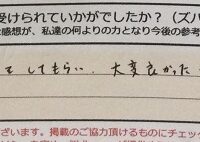 受けられていかがでしたか？（ズバ
感想が、私達の何よりの力となり今後の参考
をしてもらい、大変良かった
ざいます。掲載のご協力頂けるものにチェック